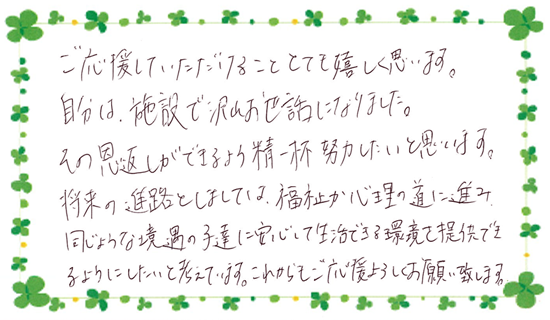 ご応援していただけることとても嬉しく思います。
自分は、施設で沢山お世話になりました。
その恩返しができるよう精一杯努力したいと思います。
将来の進路としましては、福祉か心理の道に進み、
同じような境遇の子達に安心して生活できる環境を提供でき
るようにしたいと考えています。これからもご応援よろしくお願い致します。